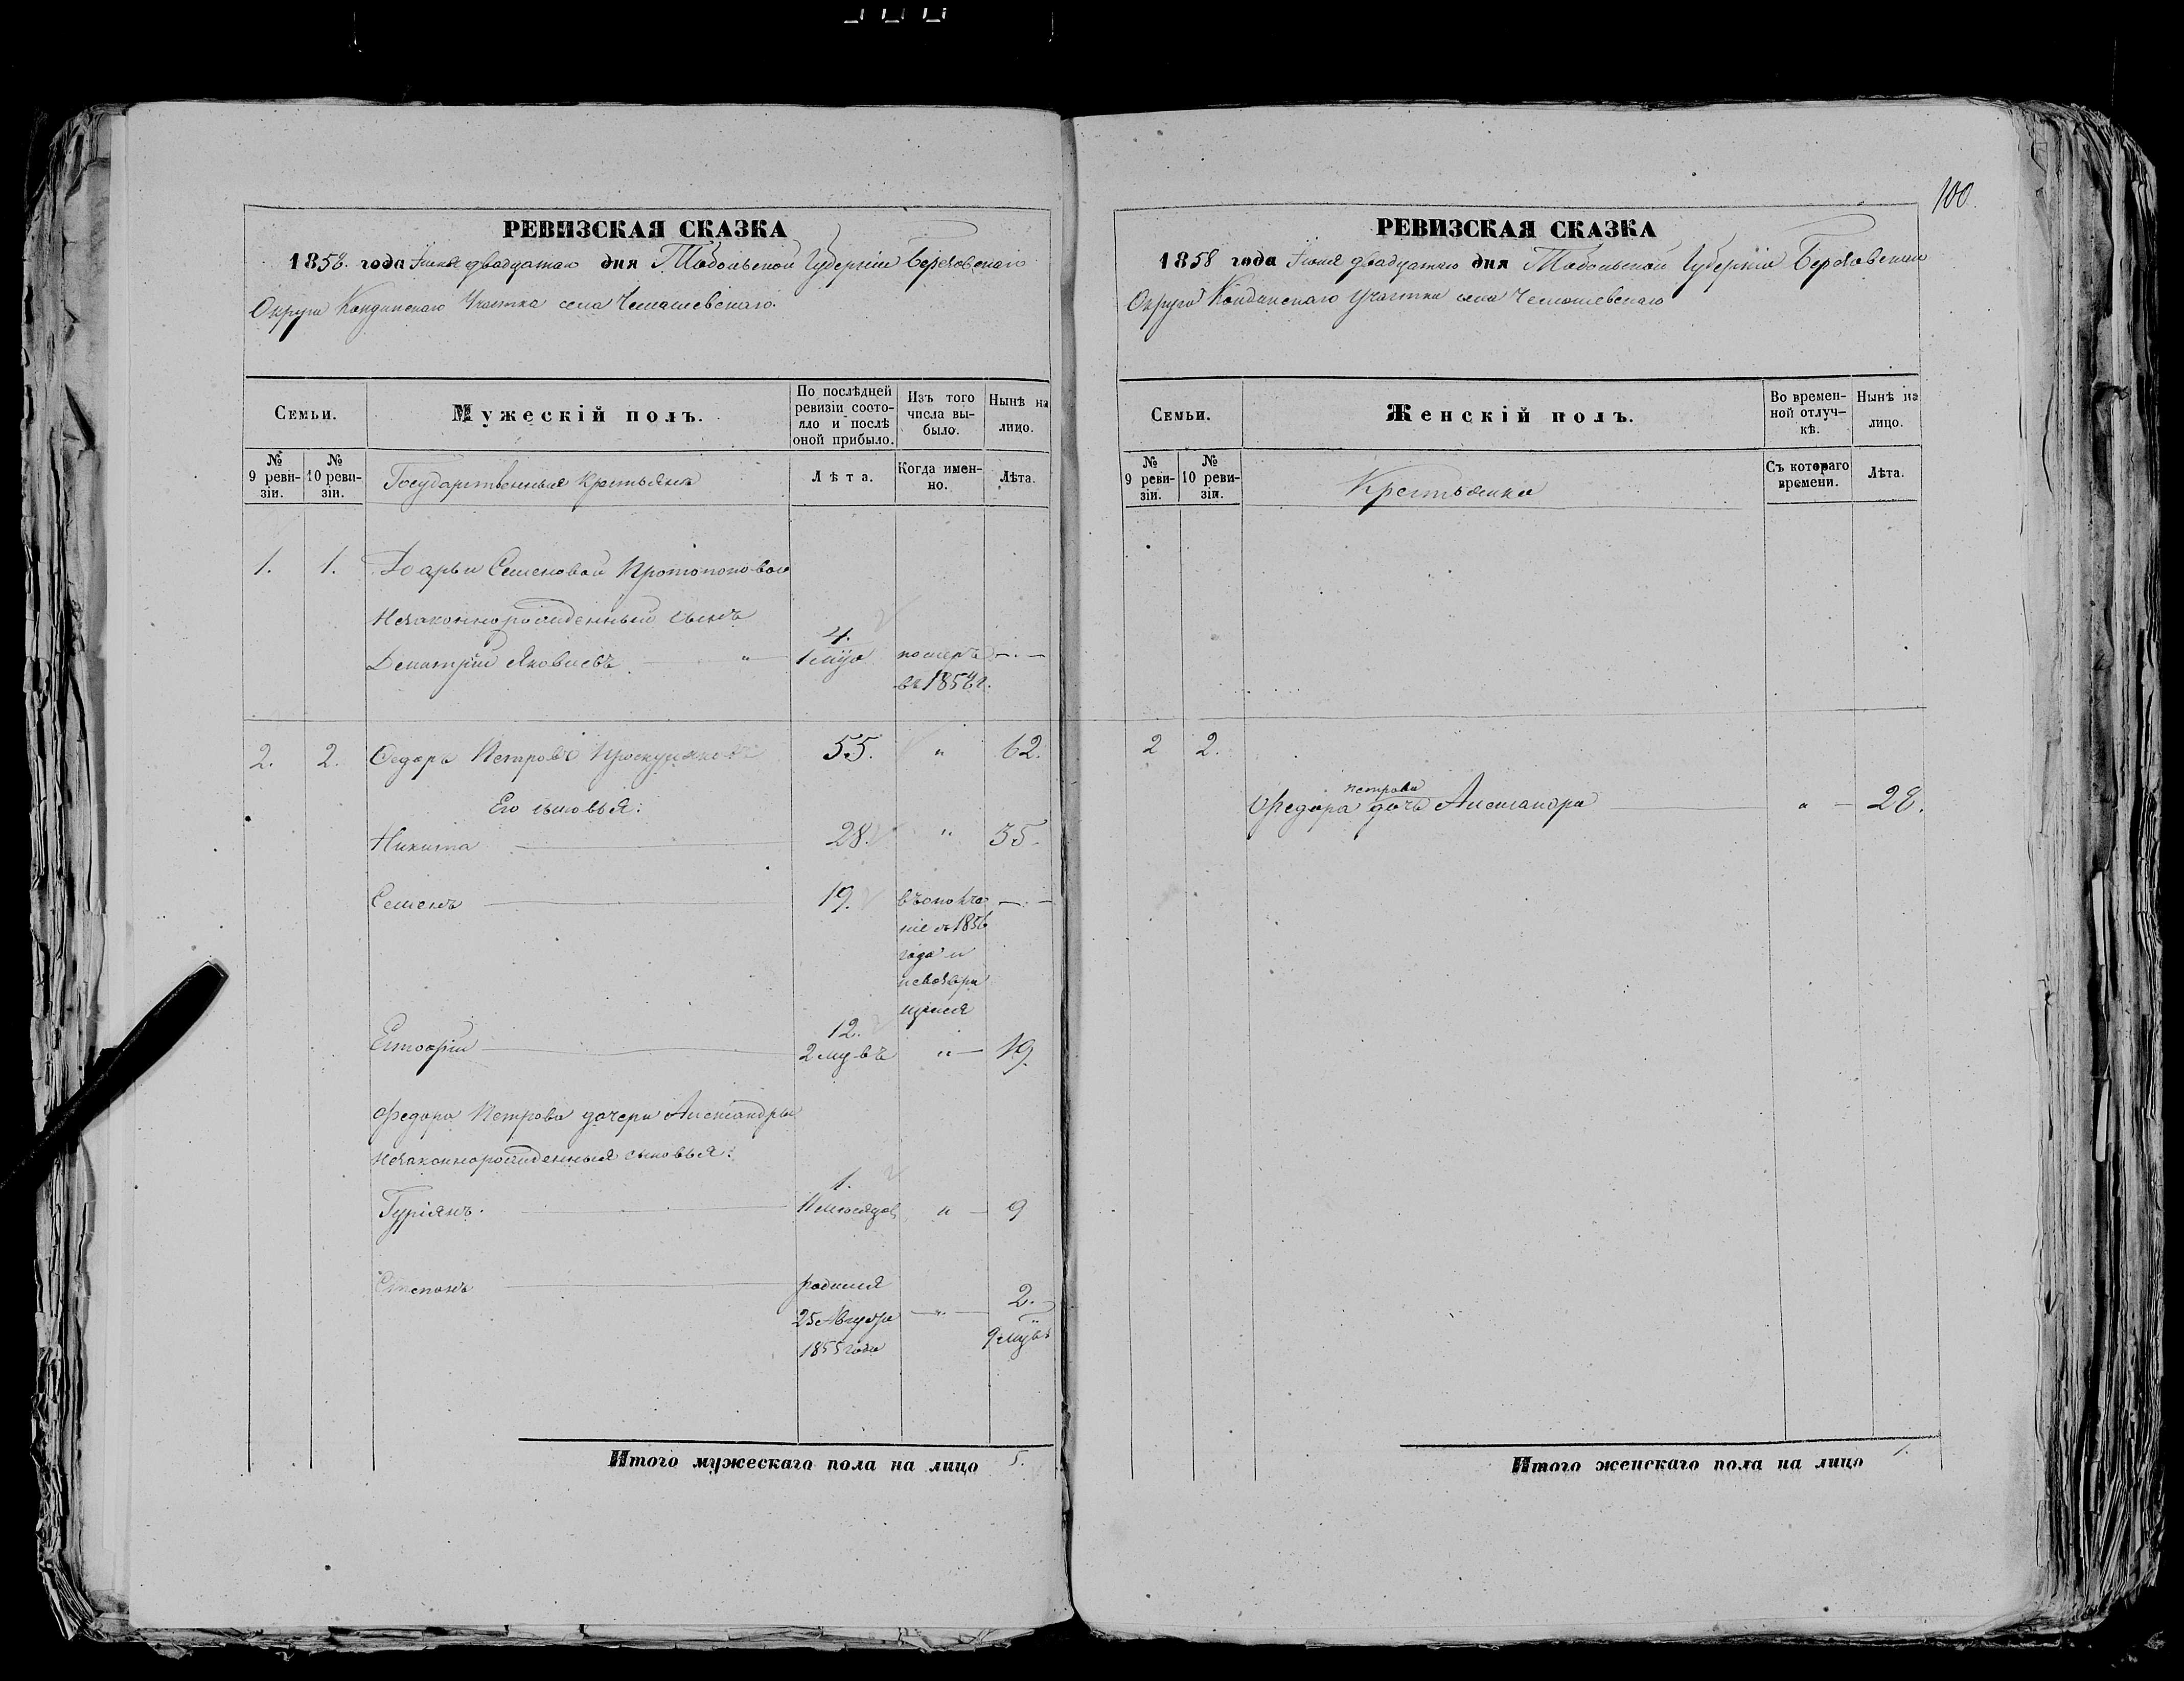 РЕВИЗСКАЯ СКАЗКА
1858. года Іюня двадцатаго дня Тобольской Губерніи Березовскаго
Округа Кондинскаго Участка села Чемашевскаго.
Семьи.
Мужескій полъ.
По послѣдней ревизіи состояло и послѣ оной прибыло.
Изъ того числа выбыло.
Нынѣ на лицо.
№ 9 ревизіи.
№ 10 ревизіи.
Государственные крестьяне
Лѣта.
Когда именно.
Лѣта.
1. 1. Дарьи Семеновой Протопоповой
незаконнорожденный сынъ
4.
Дмитрій Яковлевъ — " — 1 мца померъ — . —
въ 185 г.
2. 2. Федоръ Петровъ Проскуряковъ 55. " 62.
Его сыновья:
Никита — 28. " 35.
Семенъ — 19. въ —.—
ніе съ 1856
года и
невозвра
щенія
12.
— 2 мц-въ " — 19.
Федора Петрова дочери Александры
незаконнорожденныя сыновья:
1.
Гуріянъ. — 11 месяцов " — 9
Степанъ — родился
25 Августа — " — 2. —
1855 года 9 мцъвъ
Итого мужескаго пола на лицо 5.
100.
РЕВИЗСКАЯ СКАЗКА
1858 года Іюня двадцатаго дня Тобольской Губерніи Березовскаго
Округа Кондинскаго Участка села Чемашевскаго
Семьи.
Женскій полъ.
Во временной отлучкѣ.
Нынѣ на лицо.
№ 9 ревизіи.
№ 10 ревизіи.
Крестьянки
Съ котораго времени.
Лѣта.
2 2.
Петрова
Федора дочь Александра — " — 28.
Итого женскаго пола на лицо 1.